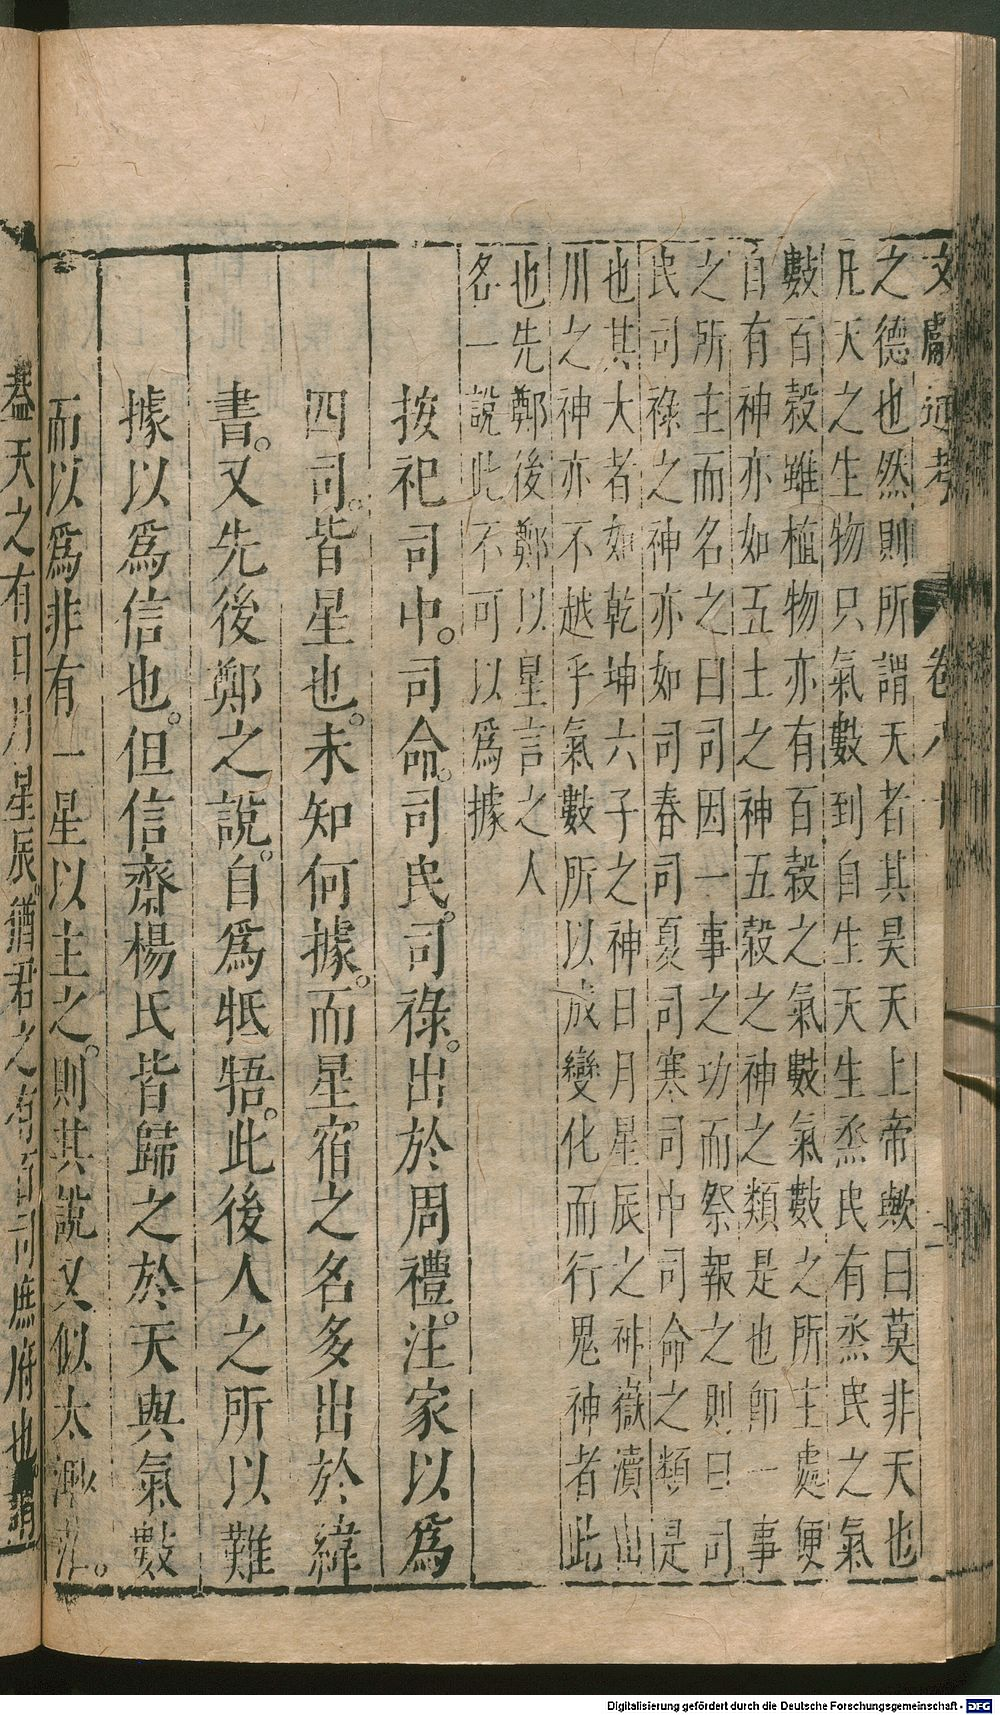 文獻通考 卷八十
之德也然則所謂天者其昊天上帝歟曰莫非天也
凡天之生物只氣數到自生天生烝民有烝民之氣
數百穀雖植物亦有百穀之氣數氣數之所主處便
自有神亦如五土之神五穀之神之類是也卽一事
之所主而名之曰司因一事之功而祭報之則曰司
民司祿之神亦如司春司夏司寒司中司命之類是
也其大者如乾坤六子之神日月星辰之神嶽瀆山
川之神亦不越乎氣數所以成變化而行鬼神者此
也先鄭後鄭以星言之人
各一說此不可以爲據
按祀司中。司命。司民。司祿。出於周禮。注家以爲
四司。皆星也。未知何據。而星宿之名多出於緯
書。又先後鄭之說。自爲牴牾。此後人之所以難
據以爲信也。但信齋楊氏皆歸之於天與氣數
而以爲非有一星以主之。則其說又似太渺茫。
蓋天之有日月星辰。猶君之有百司庶府也。謂
Digitalisierung gefördert durch die Deutsche Forschungsgemeinschaft - DFG